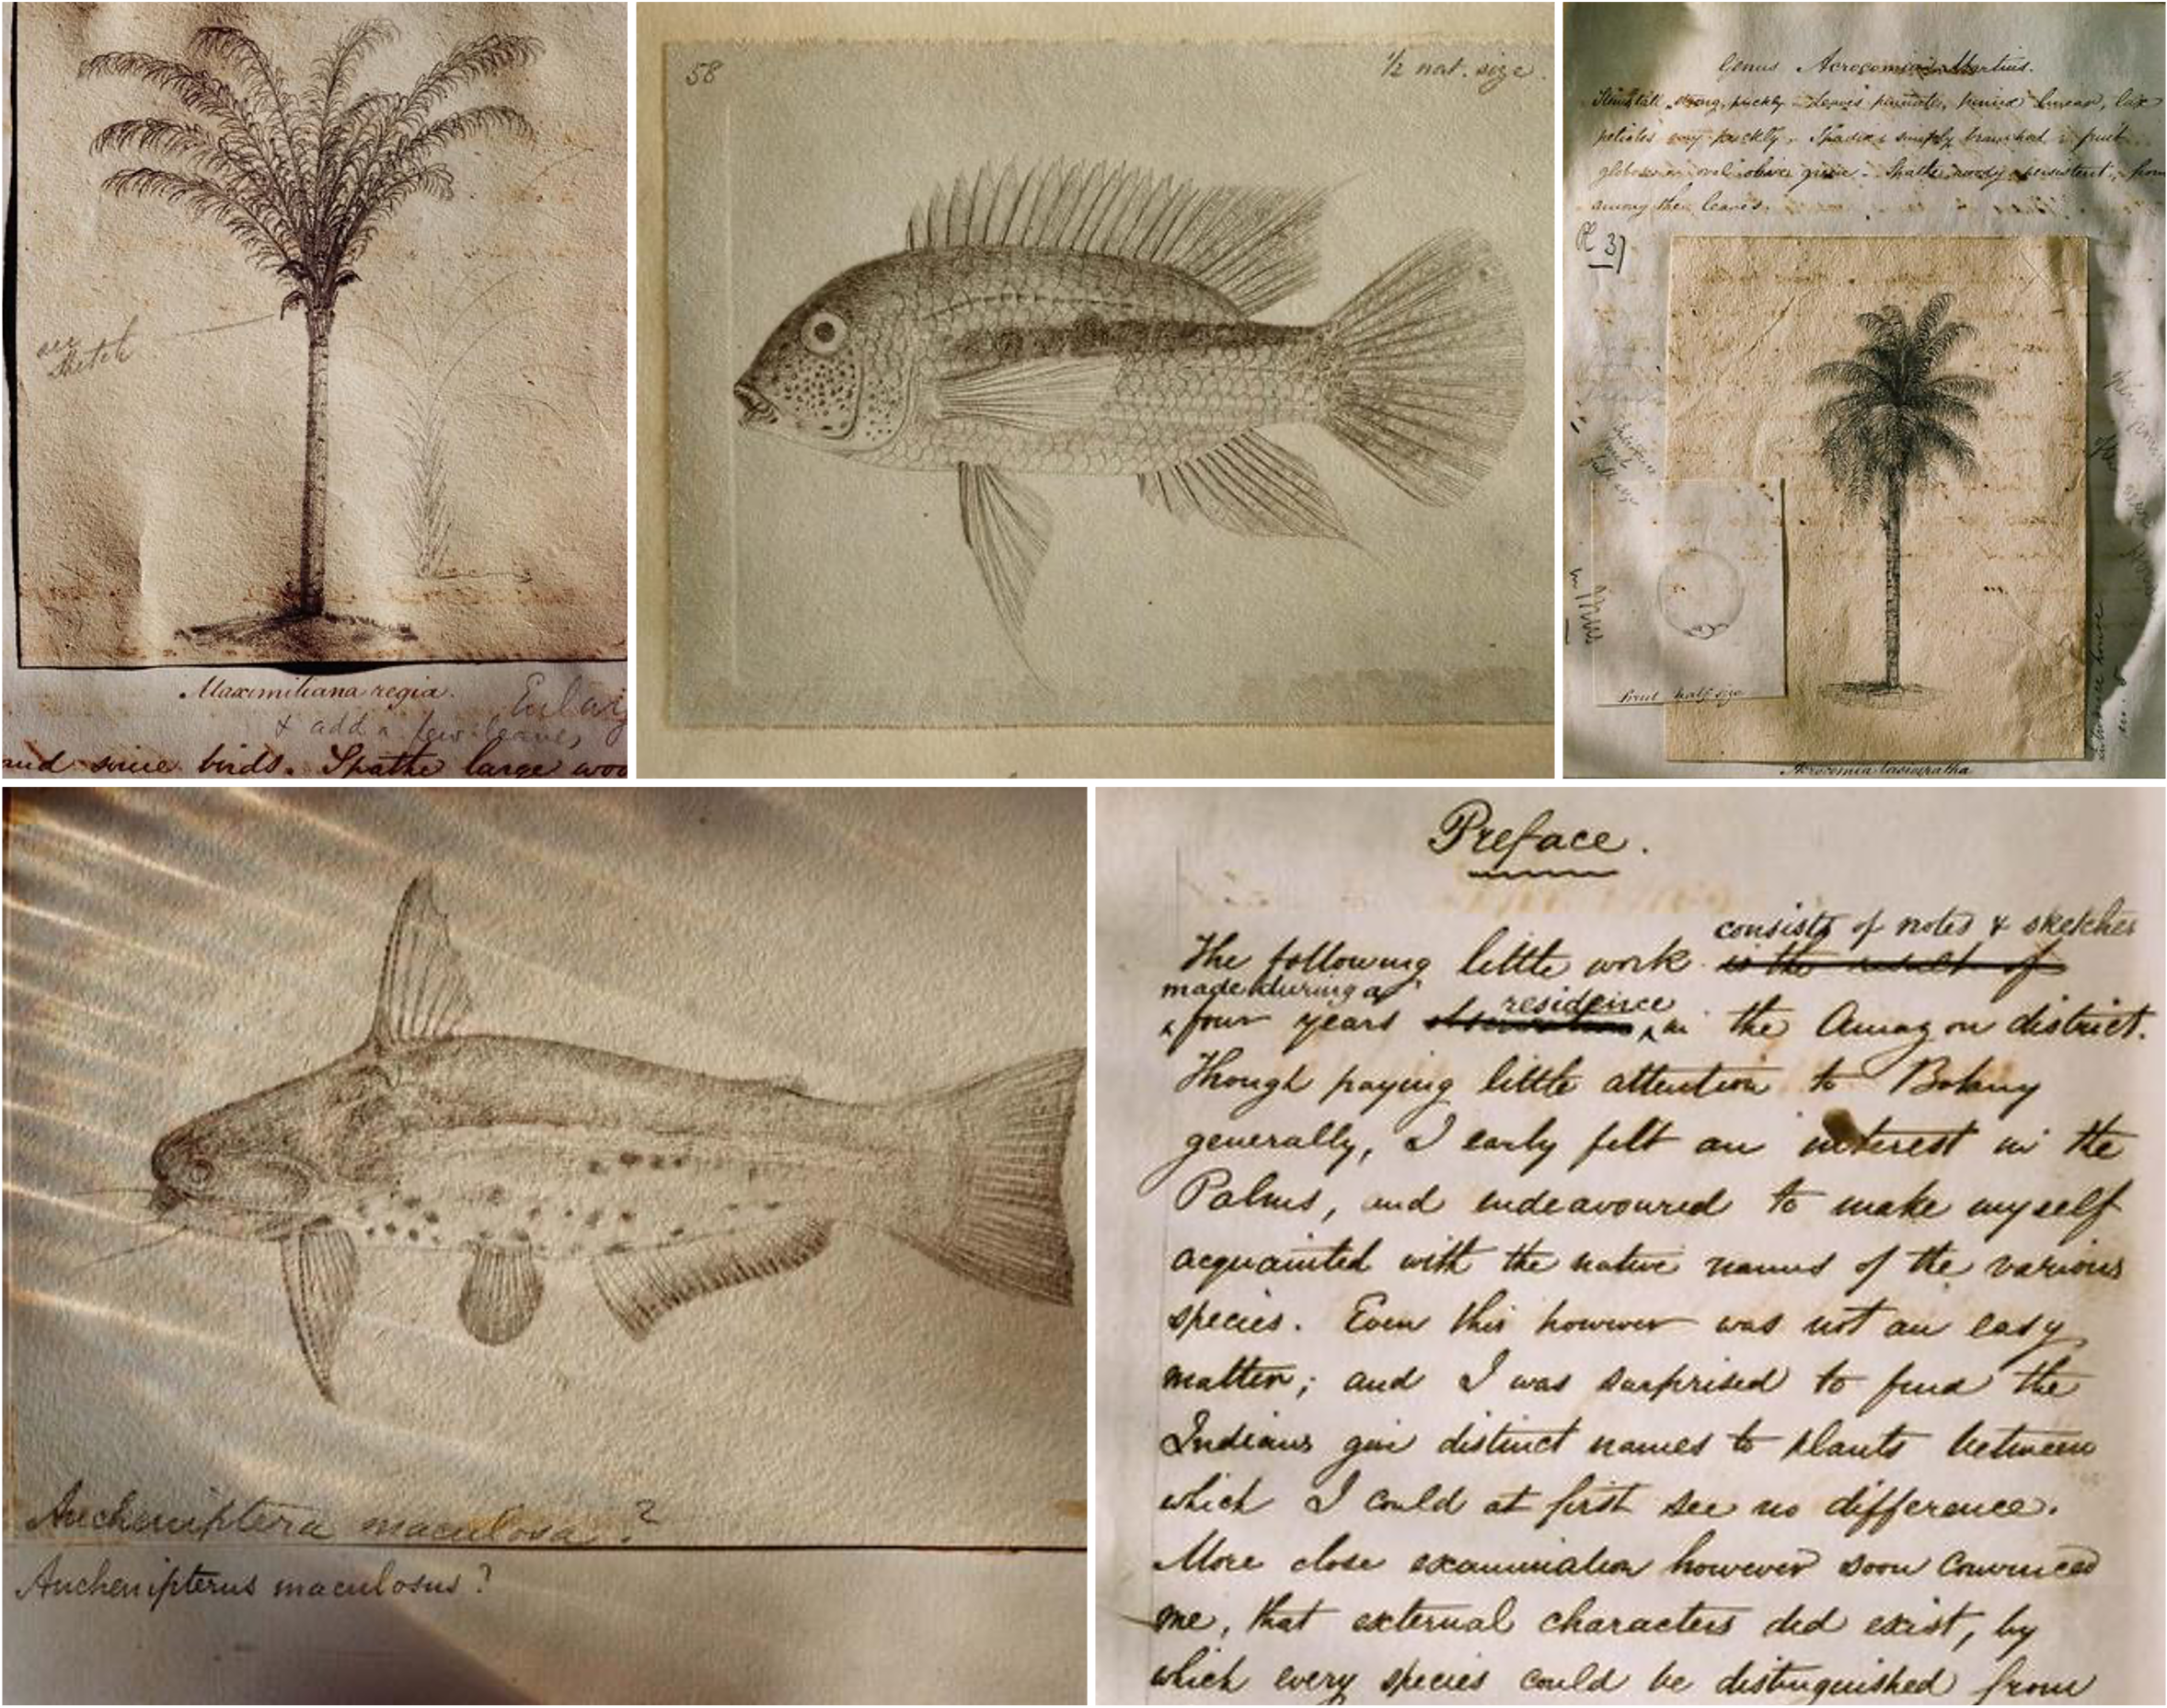 see
sketch
Maximiliana regia.
Enlarg
& add a few leaves,
and some birds. Spathe large woo
58
1/2 nat. size.
Genus Acrocomia Martius.
Stems tall strong, prickly. Leaves pinnate, linear, lax
petioles very prickly. Spadix simply branched fruit
globose or oval olive green. Spathe woody persistent, from
among the leaves.
Pl 3)
Fruit half size
Acrocomia lasiospatha
Aucheniptera maculosa?
Auchenipterus maculosus?
Preface.
consists of notes & sketches
The following little work is the result of
made during a
four years observations residence in the Amazon district.
Though paying little attention to Botany
generally, I early felt an interest in the
Palms, and endeavoured to make myself
acquainted with the native names of the various
species. Even this however was not an easy
matter; and I was surprised to find the
Indians give distinct names to plants between
which I could at first see no difference.
More close examination however soon convinced
me, that external characters did exist, by
which every species could be distinguished from